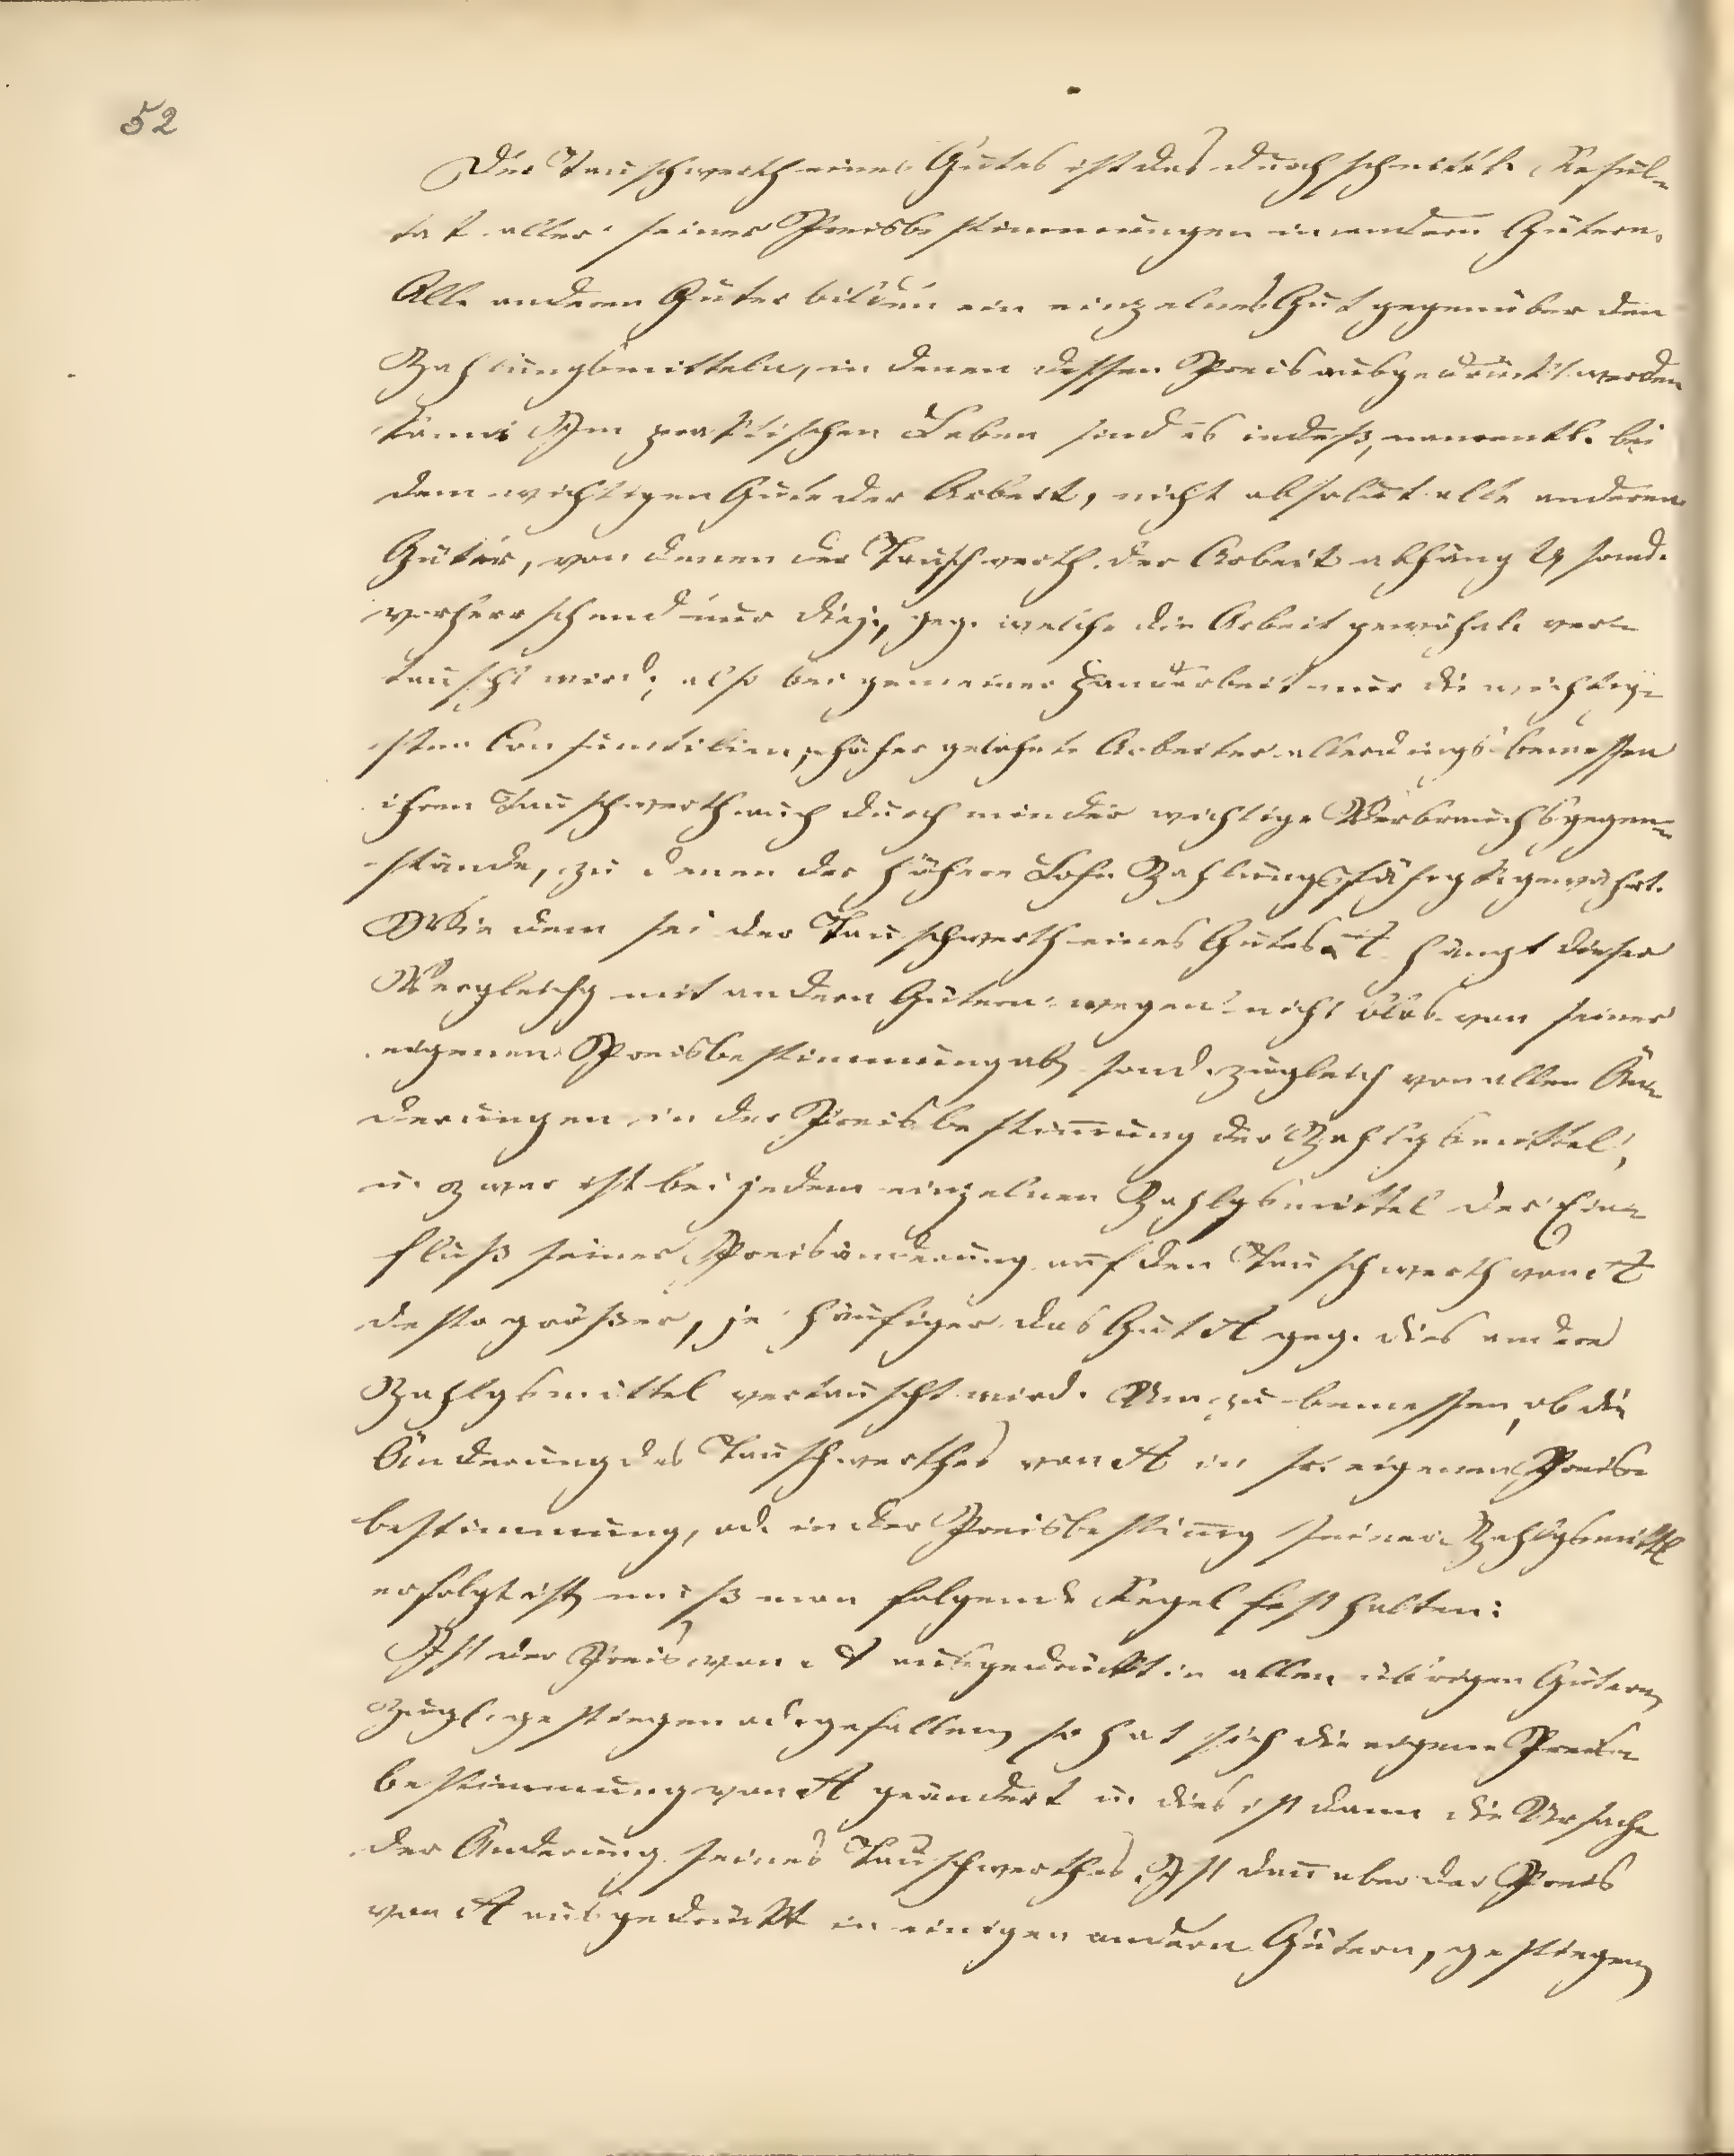 52
Der Tauschwerth eines Gutes ist das durchschnittl. Resul-
tat aller seiner Preisbestimmungen in andern Gütern.
Alle anderen Güter bilden ein einzelnes Gut gegenüber den
Zahlungsmitteln, in denen dessen Preis ausgedrückt werden
kann. Im praktischen Leben sind es indeß, namentl. bei
dem wichtigen Gute der Arbeit, nicht absolut alle anderen
Güter, von denen der Tauschwerth der Arbeit abhängt, sond.
vorherrschend nur diej., geg. welche die Arbeit gewöhnl. ver-
tauscht wird; also bei gemeiner Handarbeit nur die wichtig-
sten Consumtilien, höher gelohnte Arbeiter allerdings bemessen
ihren Tauschwerth auch durch minder wichtige Verbrauchsgegen-
stände, zu denen der höhere Lohn Zahlungsfähigk. gewährt.
Wie dem sei der Tauschwerth eines Gutes A hängt dieser
Vergleichg mit andern Gütern wegen nicht blos von seiner
eigenen Preisbestimmung ab, sond. zugleich von allen Än-
derungen in der Preisbestimmung der Zahlgsmittel,
u. zwar ist bei jedem einzelnen Zahlgsmittel der Ein-
fluß seiner Preisänderung auf den Tauschwerth von A
desto größer, je häufiger das Gut A geg. dies andre
Zahlgsmittel vertauscht wird. Um zu bemessen, ob die
Änderung des Tauschwerthes von A in sr. eigenen Preis-
bestimmung, od. in der Preisbestimg seiner Zahlgsmittl
erfolgt ist, muß man folgende Regel festhalten:
Ist der Preis von A ausgedrückt in allen übrigen Gütern,
zugl. gestiegen od. gefallen, so hat sich die eigene Preis-
bestimmung von A geändert u. dies ist dann die Ursache
der Änderung seines Tauschwerthes. Ist dann aber der Preis
von A ausgedrückt in einigen andern Gütern, gestiegen,